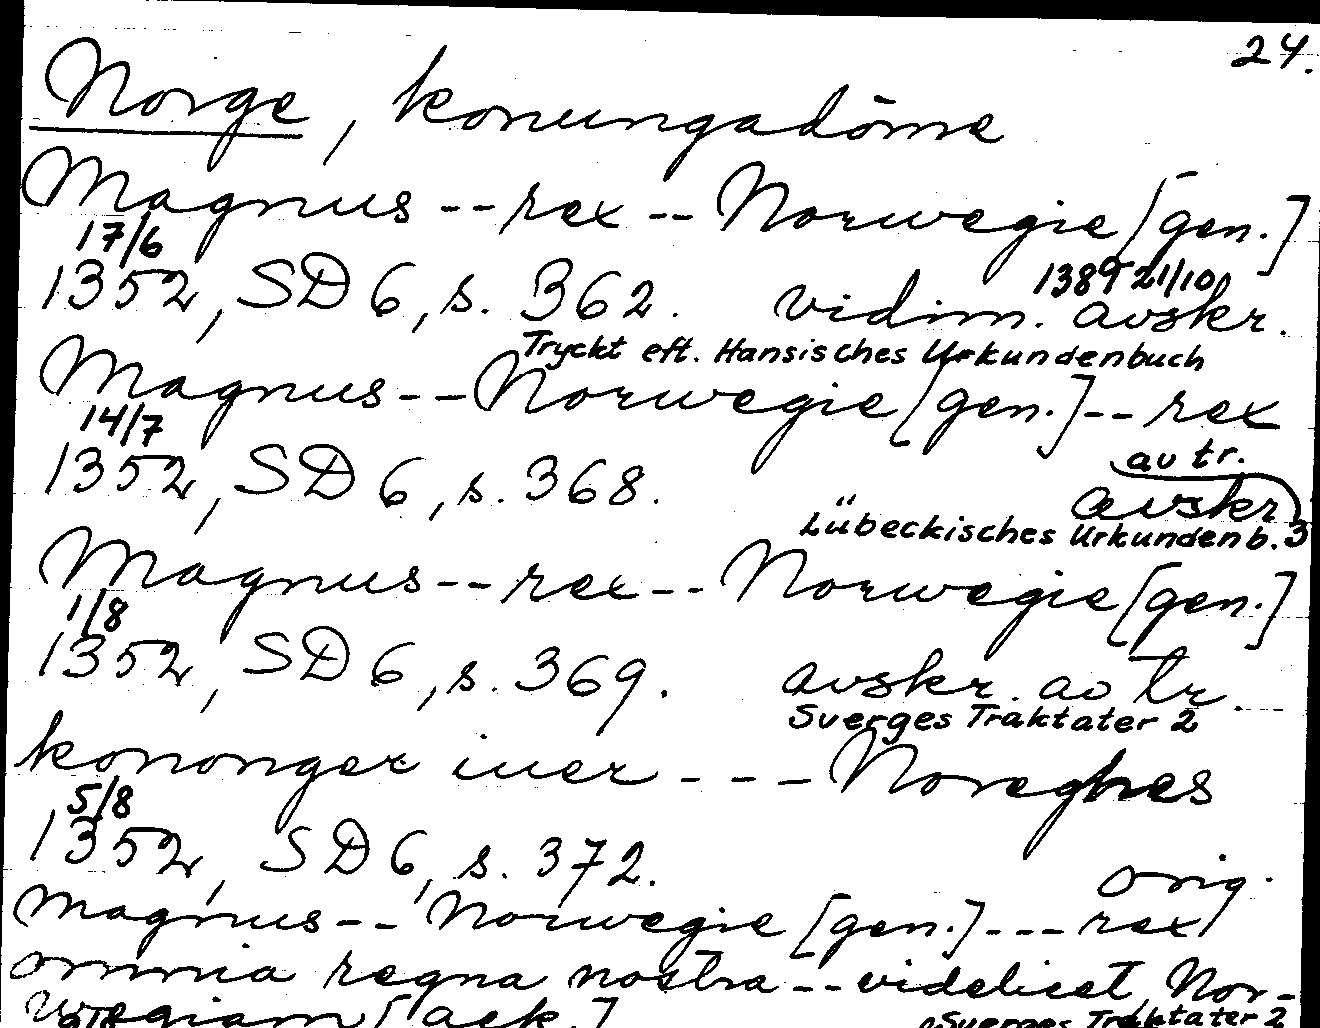 24.
Norge, konungadöme
Magnus -- rex -- Norwegie [gen.]
17/6
1352, SD 6, s. 362. vidim. avskr. 1389 21/10
Tryckt eft. Hansisches Urkundenbuch
Magnus -- Norwegie [gen.] -- rex
14/7
1352, SD 6, s. 368. avskr av tr.
Lübeckisches Urkundenb. 3
Magnus -- rex -- Norwegie [gen.]
1/8
1352, SD 6, s. 369. avskr. av tr.
Sverges Traktater 2
kononger iuer --- Noreghes
5/8
1352, SD 6, s. 372. orig.
Magnus -- Norwegie [gen.] --- rex
omnia regna nostra -- videlicet Nor-
wegiam [ack.]
Sverges Traktater 2